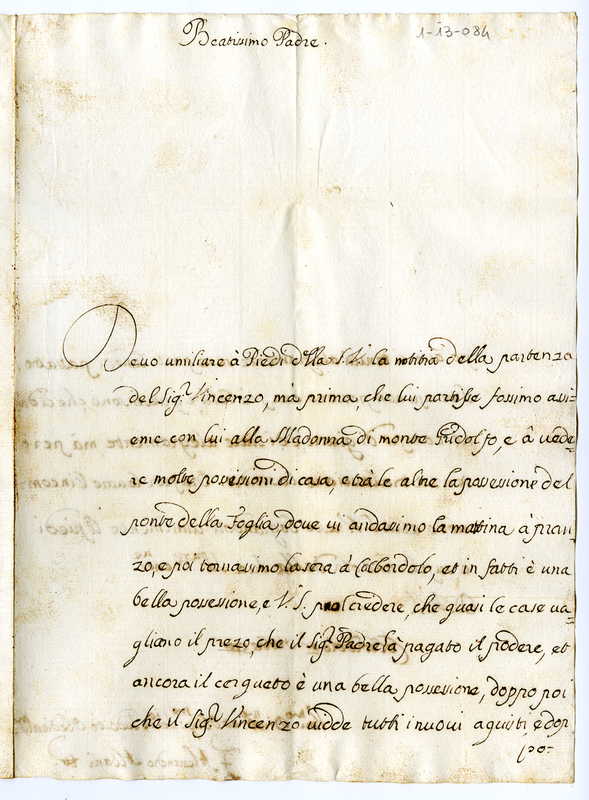 Beatissimo Padre.
1-13-084
Devo umiliare à Piedi della S.V. la notitia della partenza
del Sig.r Vincenzo, mà prima, che lui partisse fossimo assi=
eme con lui alla Madonna di monte Gridolfo, e à vede=
re molte possessioni di casa, e trà le altre la possessione del
ponte della Foglia, dove vi andasimo la mattina à pran
zo, e poi tornasimo la sera à Colbordolo, et in fatti è una
bella possessione, e V.S. puol credere, che quasi le case va=
gliano il prezo, che il Sig.r Padre hà pagato il podere, et
ancora il cerqueto è una bella possessione, doppo poi
che il Sig.r Vincenzo vidde tutti i nuovi aquisti, e dop
po=